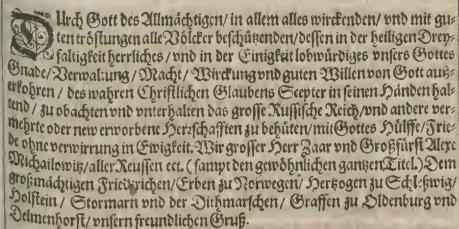 DUrch Gott des Allmächtigen/ in allem alles wirckenden/ vnd mit gu-
ten tröstungen alle Völcker beschützenden/ dessen in der heiligen Drey-
faltigkeit herrliches/ vnd in der Einigkeit lobwürdiges vnsers Gottes
Gnade/ Verwaltung/ Macht/ Wirckung vnd guten Willen von Gott auß-
erkohren/ des wahren Christlichen Glaubens Scepter in seinen Händen hal-
tend/ zu obachten vnd vnterhalten das grosse Russische Reich/ vnd andere ver-
mehrte oder new erworbene Herrschafften zu behüten/ mit Gottes Hülffe/ Frie-
de ohne verwirrung in Ewigkeit. Wir grosser Herr Zaar vnd Großfürst Alexe
Michailowitz/ aller Reussen ect. (sampt den gewöhnlichen gantzen Titel.) Dem
großmächtigen Friedrichen/ Erben zu Norwegen/ Hertzogen zu Schleßwig/
Holstein / Stormarn vnd der Dithmarschen/ Graffen zu Oldenburg vnd
Delmenhorst/ vnsern freundlichen Gruß.